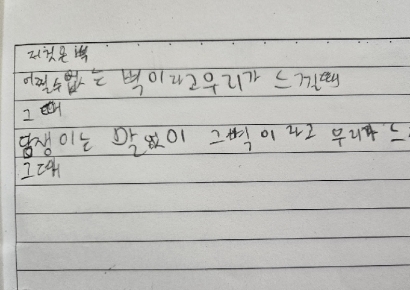 저것은 벽
어쩔수없는 벽이라고우리가 느낄때
그때
담쟁이는 말없이 그벽이라고 우리가 느
그때